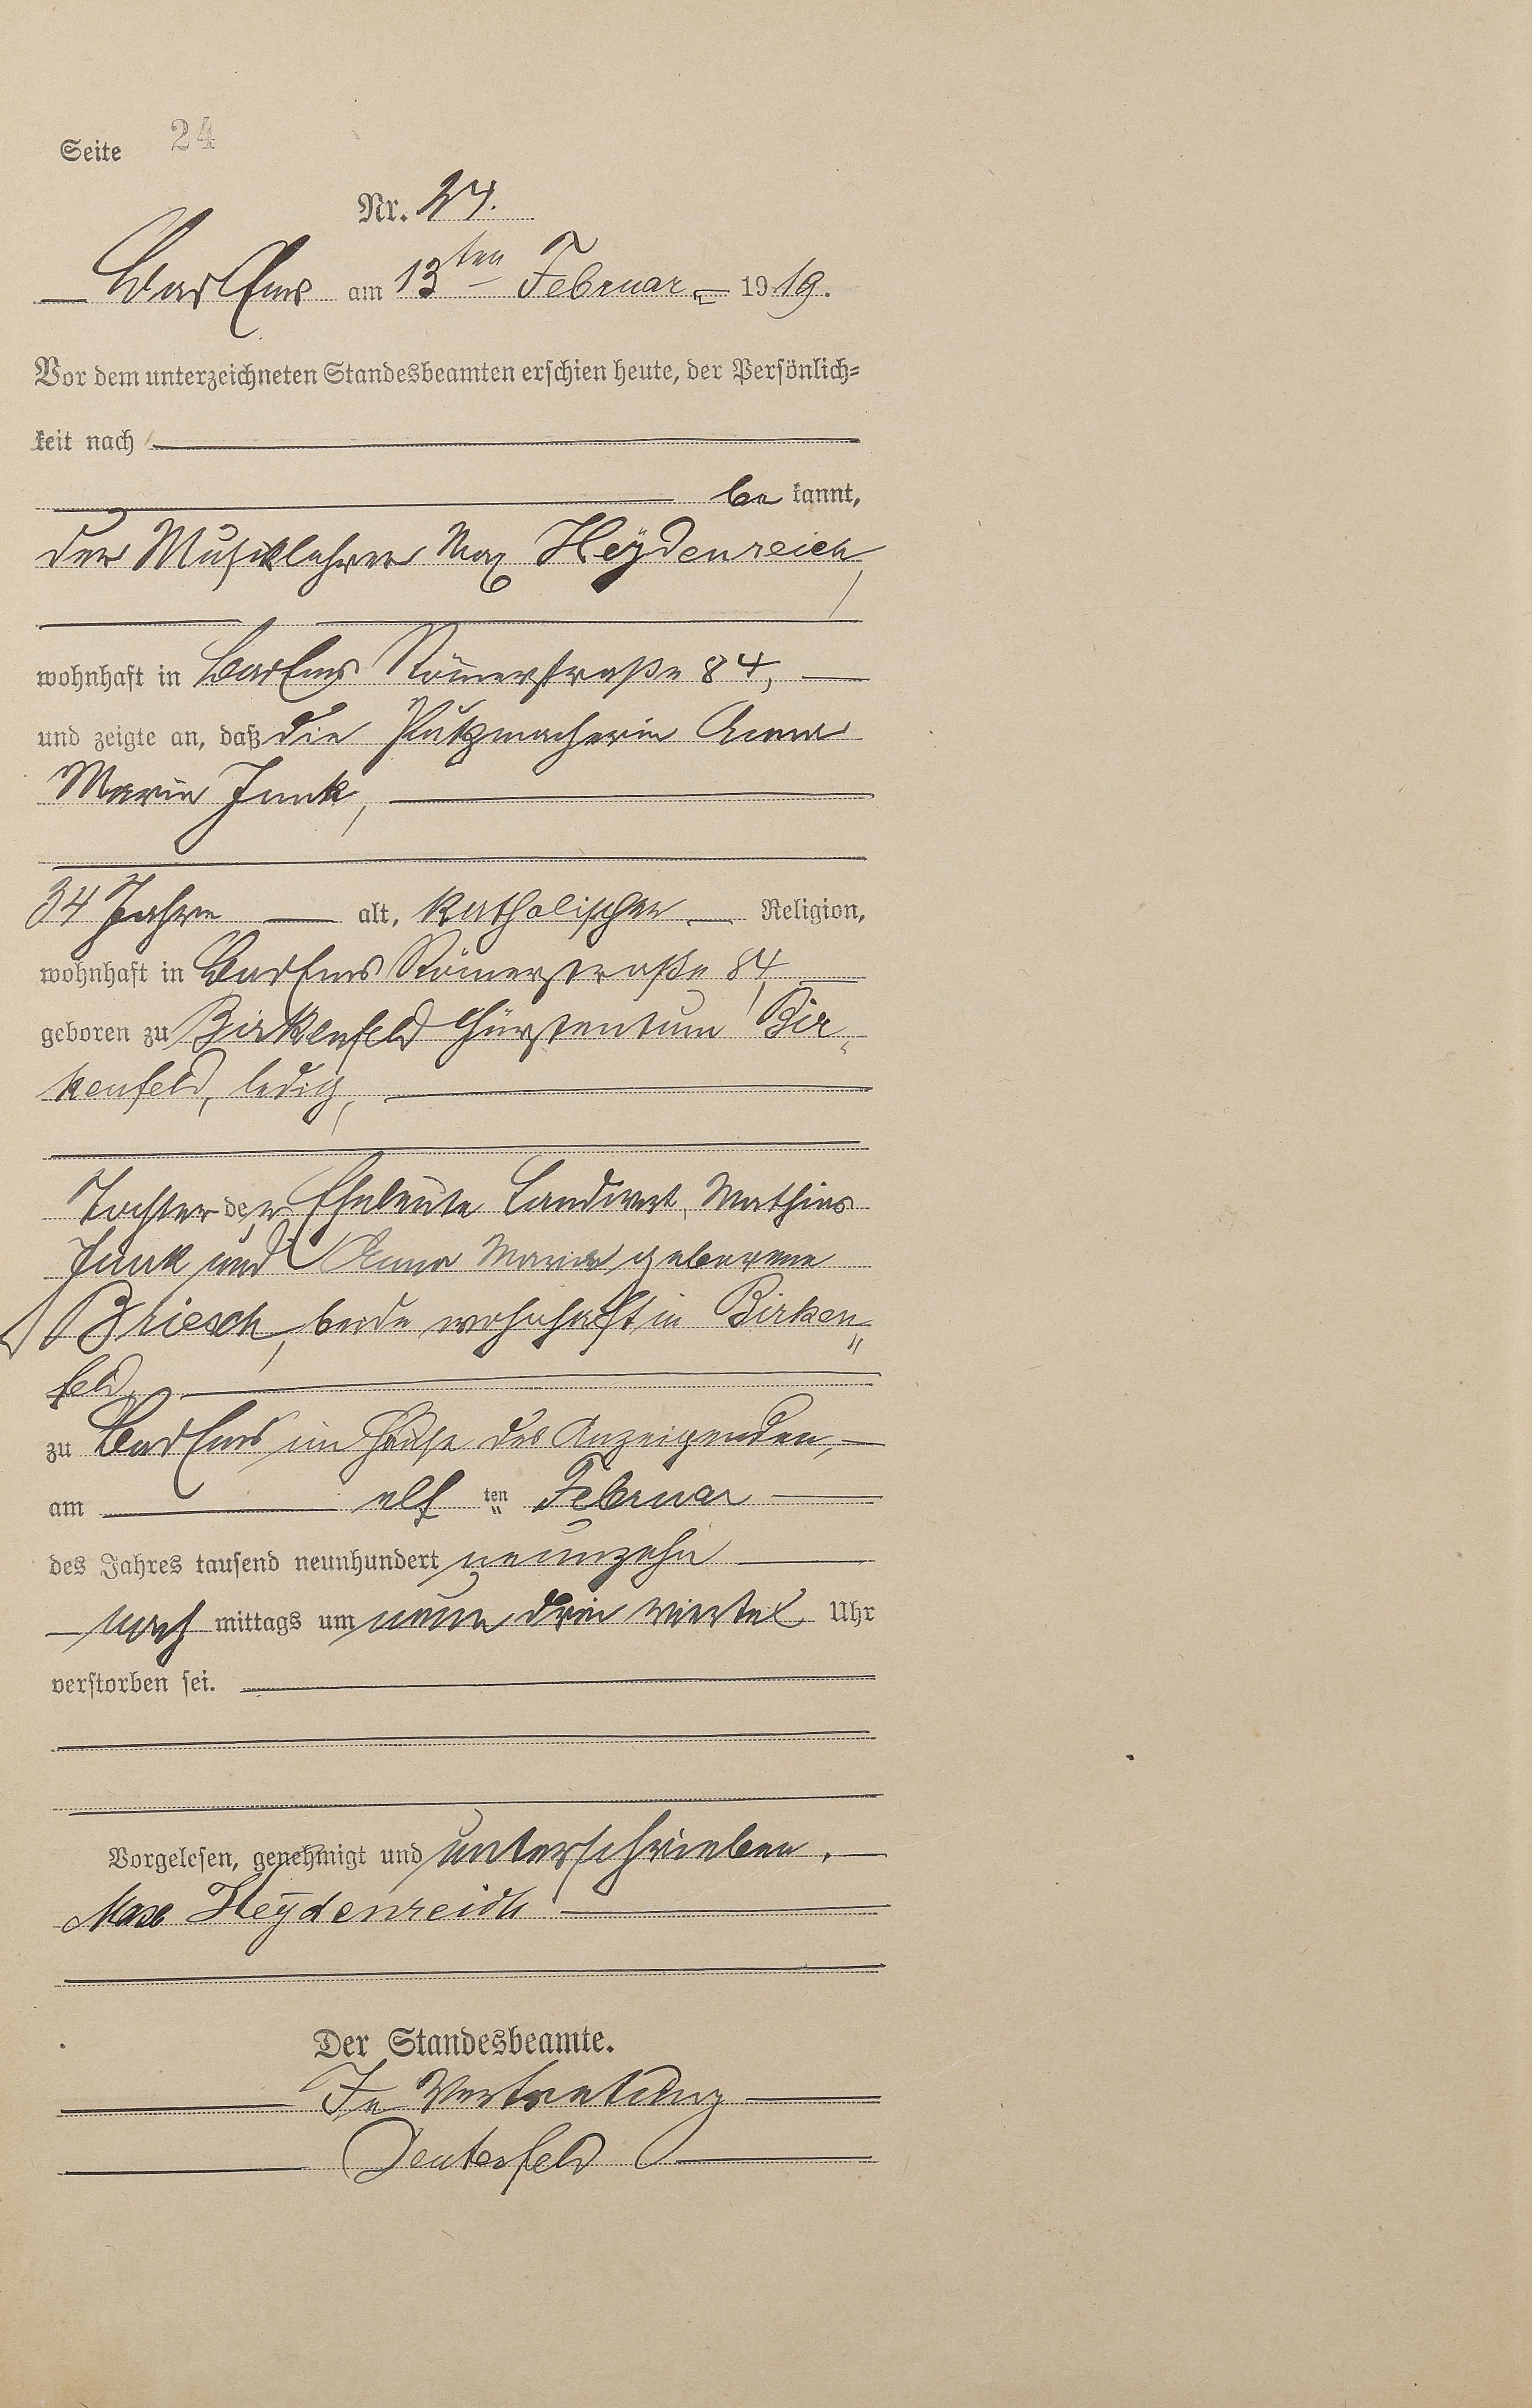 Seite 24
Nr. 24.
Bad Ems am 13ten Februar 1919.
Vor dem unterzeichneten Standesbeamten erschien heute, der Persönlich=
keit nach
be kannt,
der Musiklehrer Max Heydenreich,
wohnhaft in Bad Ems Römerstraße 84,
und zeigte an, daß die Putzmacherin Anna
Maria Junk,
34 Jahre alt, katholischer Religion,
wohnhaft in Bad Ems Römerstraße 84,
geboren zu Birkenfeld Fürstentum Bir„
kenfeld, ledig,
Tochter der Eheleute Landwirt Mathias
Junk und Anna Maria geborene
Briesch, beide wohnhaft in Birken„
feld,
zu Bad Ems im Hause des Anzeigenden,
am elf ten Februar
des Jahres tausend neunhundert neunzehn
nach mittags um neun drei viertel Uhr
verstorben sei.
Vorgelesen, genehmigt und unterschrieben.
Max Heydenreich
Der Standesbeamte.
In Vertretung